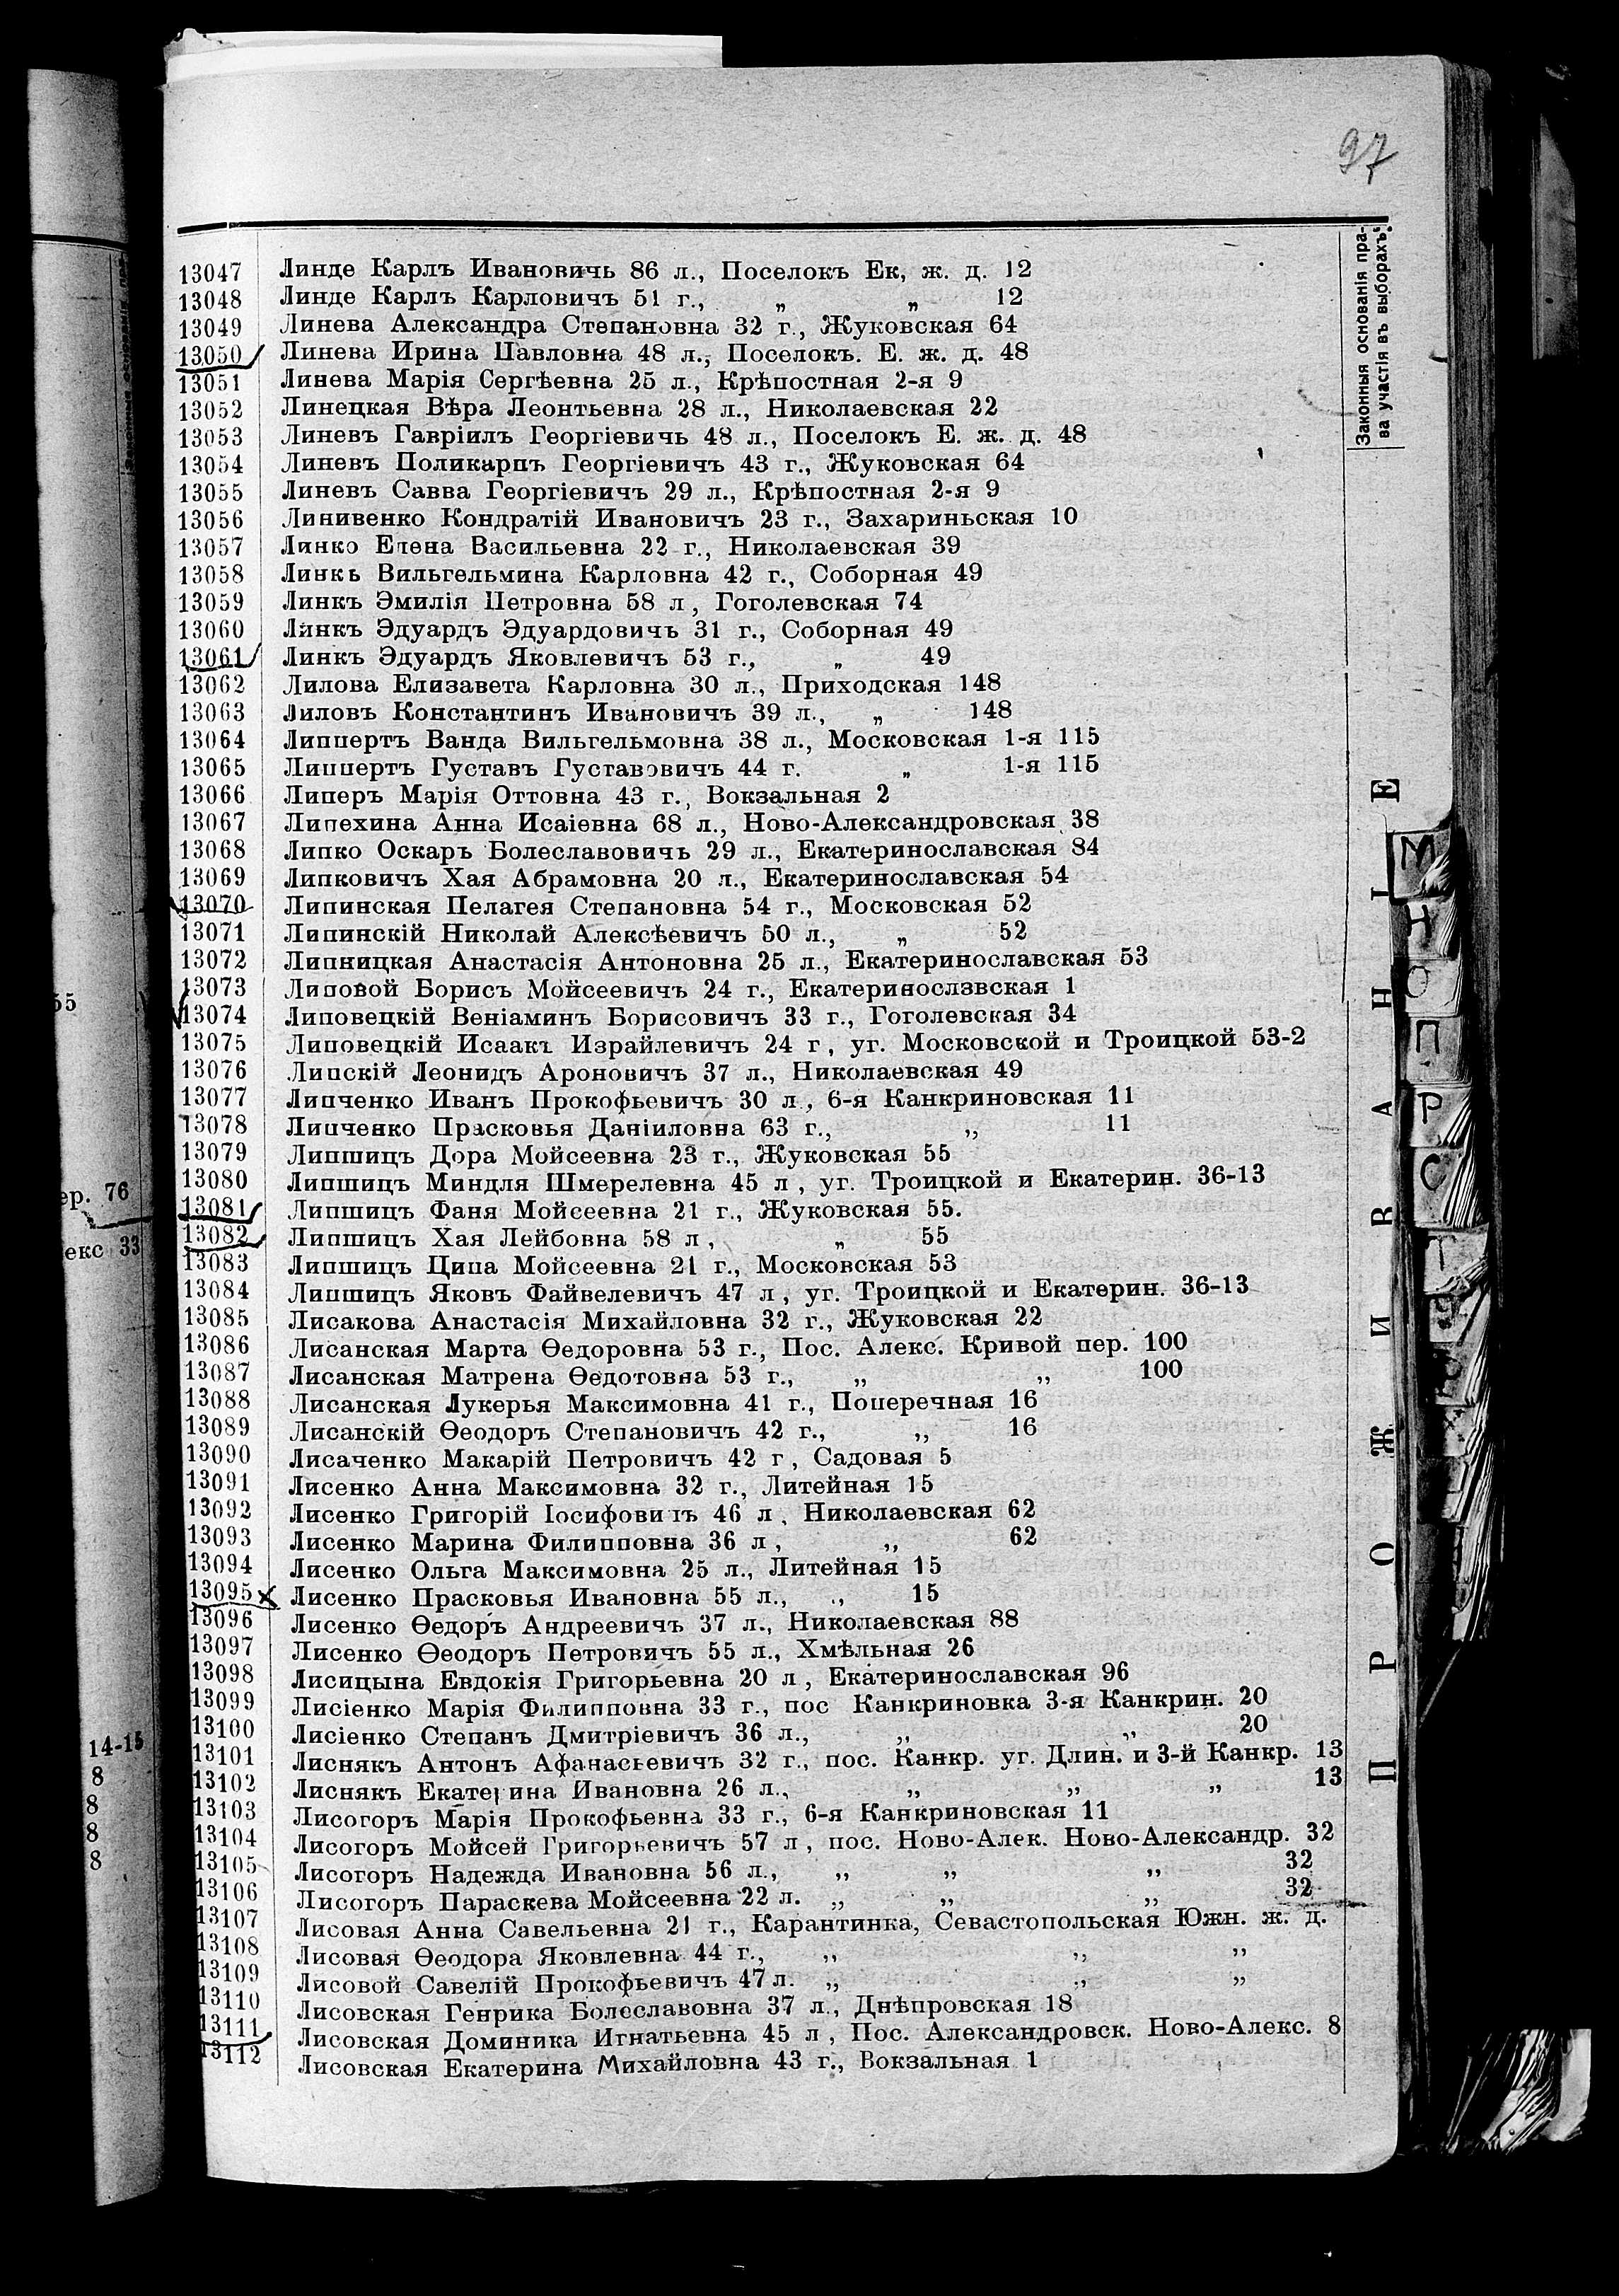 97
Законныя основанія пра-
ва участія въ выборахъ.
13047 Линде Карлъ Ивановичь 86 л., Поселокъ Ек, ж. д. 12
13048 Линде Карлъ Карловичъ 51 г., „ „ 12
13049 Линева Александра Степановна 32 г., Жуковская 64
13050 Линева Ирина Павловна 48 л., Поселокъ. Е. ж. д. 48
13051 Линева Марія Сергѣевна 25 л., Крѣпостная 2-я 9
13052 Линецкая Вѣра Леонтьевна 28 л., Николаевская 22
13053 Линевъ Гавріилъ Георгіевичь 48 л., Поселокъ Е. ж. д. 48
13054 Линевъ Поликарпъ Георгіевичъ 43 г., Жуковская 64
13055 Линевъ Савва Георгіевичъ 29 л., Крѣпостная 2-я 9
13056 Линивенко Кондратій Ивановичъ 23 г., Захариньская 10
13057 Линко Елена Васильевна 22 г., Николаевская 39
13058 Линкь Вильгельмина Карловна 42 г., Соборная 49
13059 Линкъ Эмилія Петровна 58 л, Гоголевская 74
13060 Линкъ Эдуардъ Эдуардовичъ 31 г., Соборная 49
13061 Линкъ Эдуардъ Яковлевичъ 53 г., „ 49
13062 Лилова Елизавета Карловна 30 л., Приходская 148
13063 Лиловъ Константинъ Ивановичъ 39 л., „ 148
13064 Липпертъ Ванда Вильгельмовна 38 л., Московская 1-я 115
13065 Липпертъ Густавъ Густавовичъ 44 г. „ 1-я 115
13066 Липеръ Марія Оттовна 43 г., Вокзальная 2
13067 Липехина Анна Исаіевна 68 л., Ново-Александровская 38
13068 Липко Оскаръ Болеславовичь 29 л., Екатеринославская 84
13069 Липковичъ Хая Абрамовна 20 л., Екатеринославская 54
13070 Липинская Пелагея Степановна 54 г., Московская 52
13071 Липинскій Николай Алексѣевичъ 50 л., „ 52
13072 Липницкая Анастасія Антоновна 25 л., Екатеринославская 53
13073 Липовой Борисъ Мойсеевичъ 24 г., Екатеринослзвская 1
13074 Липовецкій Веніаминъ Борисовичъ 33 г., Гоголевская 34
13075 Липовецкій Исаакъ Израйлевичъ 24 г, уг. Московской и Троицкой 53-2
13076 Липскій Леонидъ Ароновичъ 37 л., Николаевская 49
13077 Липченко Иванъ Прокофьевичъ 30 л, 6-я Канкриновская 11
13078 Липченко Прасковья Даніиловна 63 г., „ 11
13079 Липшицъ Дора Мойсеевна 23 г., Жуковская 55
13080 Липшицъ Миндля Шмерелевна 45 л, уг. Троицкой и Екатерин. 36-13
13081 Липшицъ Фаня Мойсеевна 21 г., Жуковская 55.
13082 Липшицъ Хая Лейбовна 58 л, „ 55
13083 Липшицъ Ципа Мойсеевна 21 г., Московская 53
13084 Липшицъ Яковъ Файвелевичъ 47 л, уг. Троицкой и Екатерин. 36-13
13085 Лисакова Анастасія Михайловна 32 г., Жуковская 22
13086 Лисанская Марта Ѳедоровна 53 г., Пос. Алекс. Кривой пер. 100
13087 Лисанская Матрена Ѳедотовна 53 г., „ „ 100
13088 Лисанская Лукерья Максимовна 41 г., Поперечная 16
13089 Лисанскій Ѳеодоръ Степановичъ 42 г., „ 16
13090 Лисаченко Макарій Петровичъ 42 г, Садовая 5
13091 Лисенко Анна Максимовна 32 г., Литейная 15
13092 Лисенко Григорій Іосифовичъ 46 л, Николаевская 62
13093 Лисенко Марина Филипповна 36 л, „ 62
13094 Лисенко Ольга Максимовна 25 л., Литейная 15
13095 Лисенко Прасковья Ивановна 55 л., „ 15
13096 Лисенко Ѳедоръ Андреевичъ 37 л., Николаевская 88
13097 Лисенко Ѳеодоръ Петровичъ 55 л., Хмѣльная 26
13098 Лисицына Евдокія Григорьевна 20 л, Екатеринославская 96
13099 Лисіенко Марія Филипповна 33 г., пос Канкриновка 3-я Канкрин. 20
13100 Лисіенко Степанъ Дмитріевичъ 36 л., „ „ 20
13101 Лиснякъ Антонъ Афанасьевичъ 32 г., пос. Канкр. уг. Длин. и 3-й Канкр. 13
13102 Лиснякъ Екатерина Ивановна 26 л., „ „ „ 13
13103 Лисогоръ Марія Прокофьевна 33 г., 6-я Канкриновская 11
13104 Лисогоръ Мойсей Григорьевичъ 57 л, пос. Ново-Алек. Ново-Александр. 32
13105 Лисогоръ Надежда Ивановна 56 л., „ „ „ 32
13106 Лисогоръ Параскева Мойсеевна 22 л. „ „ „ 32
13107 Лисовая Анна Савельевна 21 г., Карантинка, Севастопольская Южн. ж. д.
13108 Лисовая Ѳеодора Яковлевна 44 г., „ „ „
13109 Лисовой Савелій Прокофьевичъ 47 л. „ „ „
13110 Лисовская Генрика Болеславовна 37 л., Днѣпровская 18
13111 Лисовская Доминика Игнатьевна 45 л, Пос. Александровск. Ново-Алекс. 8
13112 Лисовская Екатерина Михайловна 43 г., Вокзальная 1
ПРОЖИВАНІЕ
М
Н
О
П
Р
С
Т
55
ер. 76
екс 33
14-15
8
8
8
8